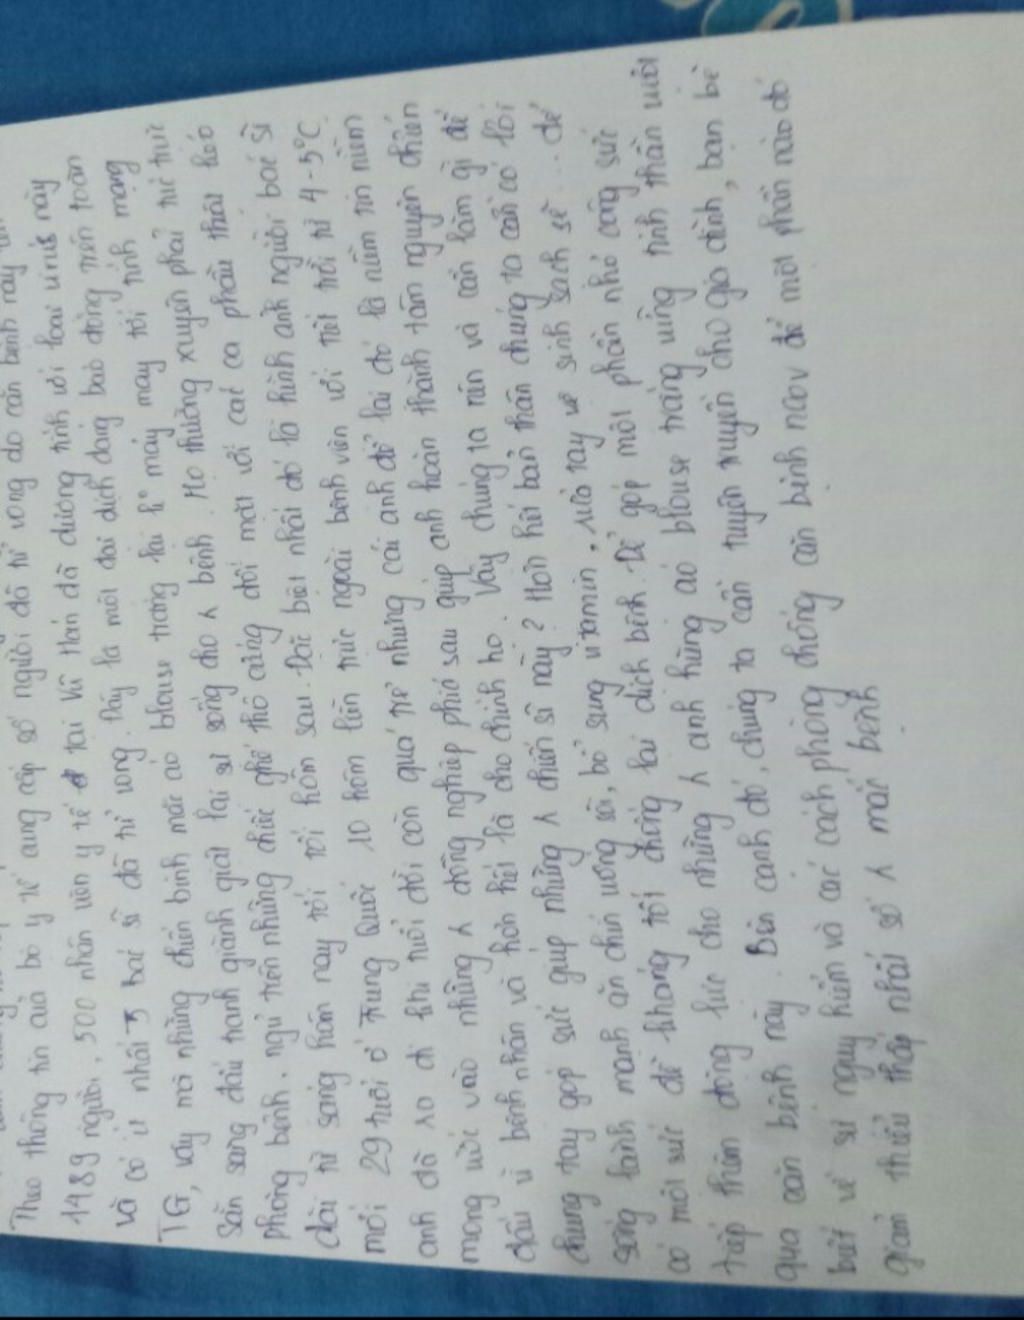 do căn bệnh này
Theo thông tin của bộ y tế cung cấp số người đã tử vong
1489 người, 500 nhân viên y tế tại Vũ Hán đã dương tính với loại virus này
và có ít nhất 3 bác sĩ đã tử vong. Đây là một đại dịch đang báo động trên toàn
TG, vậy mà những chiến binh mặc áo blouse trắng lại k° mảy may tới tính mạng
Sẵn sàng đấu tranh giành giật lại sự sống cho λ bệnh. Họ thường xuyên phải túc trực
phòng bệnh, ngủ trên những chiếc ghế thô cứng đối mặt với các ca phẫu thuật kéo
dài từ sáng hôm nay tới tối hôm sau. Đặc biệt nhất đó là hình ảnh người bác sĩ
mới 29 tuổi ở Trung Quốc 10 hôm liền trực ngoài bệnh viện với tiết trời từ 4-5°C.
anh đã ra đi khi tuổi đời còn quá trẻ nhưng cái anh để lại đó là niềm tin niềm
mong ước vào những λ đồng nghiệp phía sau giúp anh hoàn thành tâm nguyện chiến
đấu vì bệnh nhân và hơn hết là cho chính họ. Vậy chúng ta nên và cần làm gì để
chung tay góp sức giúp những λ chiến sĩ này? Hơn hết bản thân chúng ta cần có lối
sống lành mạnh ăn chín uống sôi, bổ sung vitamin, rửa tay vệ sinh sạch sẽ... để
có một sức đề kháng tốt chống lại dịch bệnh. Để góp một phần nhỏ công sức
tiếp thêm động lực cho những λ anh hùng áo blouse trắng vững tinh thần vượt
qua căn bệnh này. Bên cạnh đó, chúng ta cần tuyên truyền cho gia đình, bạn bè
biết về sự nguy hiểm và các cách phòng chống căn bệnh ncov để một phần nào đó
giảm thiểu thấp nhất số λ mắc bệnh